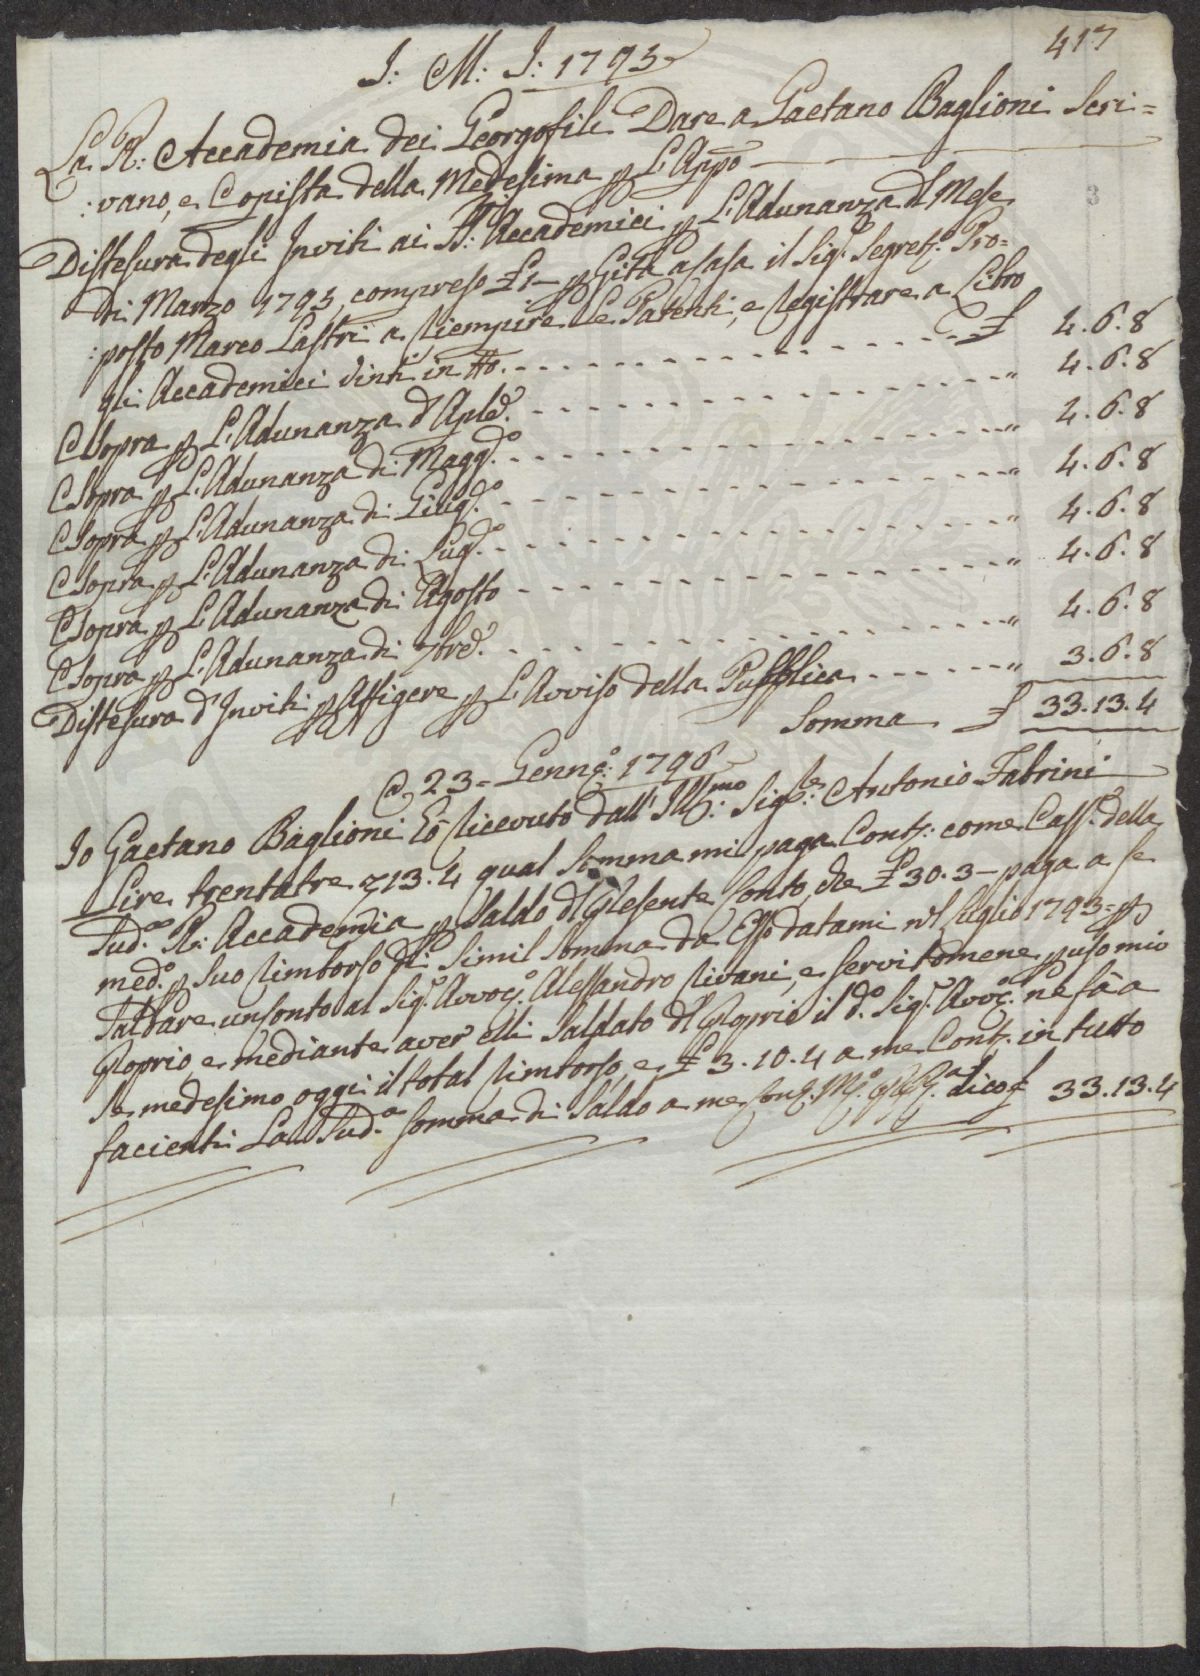 417
J: M: J: 1795
La R: Accademia dei Georgofili Dare a Gaetano Baglioni Scri=
:vano, e Copista della Medesima p L'App.o
Distesura degli Inviti ai SS: Accademici p L'Adunanza dl Mese
di Marzo 1795 compreso £ 1- p Gita a Casa il Sig.r Segret.o Pro=
:posto Marco Lastri a riempire Le Patenti, e registrare a Libro
gli Accademici vinti in tt.o £ 4.6.8
C Sopra p L'Adunanza d'Aple. " 4.6.8
C Sopra p L'Adunanza di Magg.o " 4.6.8
C Sopra p L'Adunanza di Giug.o " 4.6.8
C Sopra p L'Adunanza di Lug.o " 4.6.8
C Sopra p L'Adunanza di Agosto " 4.6.8
C Sopra p L'Adunanza di 7bre. " 4.6.8
Distesura d'Inviti p Affigere p L'Avviso della Pubblica " 3.6.8
Somma £ 33.13.4
A. 23= Genn.o: 1796
Io Gaetano Baglioni hò ricevuto dall' Ill.mo: Sig.re: Antonio Fabrini
Lire trentatre 713.4 qual Somma mi paga Cont.: come Cass.e della
Sud.a R: Accademia p Saldo dl presente Conto, che £ 30.3- paga a se
med.o p suo rimborso di simil Somma da Esso datami nl Luglio 1793= p
Saldare un Conto al Sig.r Avvoc.o Alessandro Rivani, e servitomene p uso mio
proprio e mediante aver elli Saldato dl proprio il d.o Sig.r Avvoc. ne fà a
se medesimo oggi il total rimborso, e £ 3.10.4 a me Cont. in tutto
facienti La Sud.a Somma di Saldo a me dico £ 33.13.4